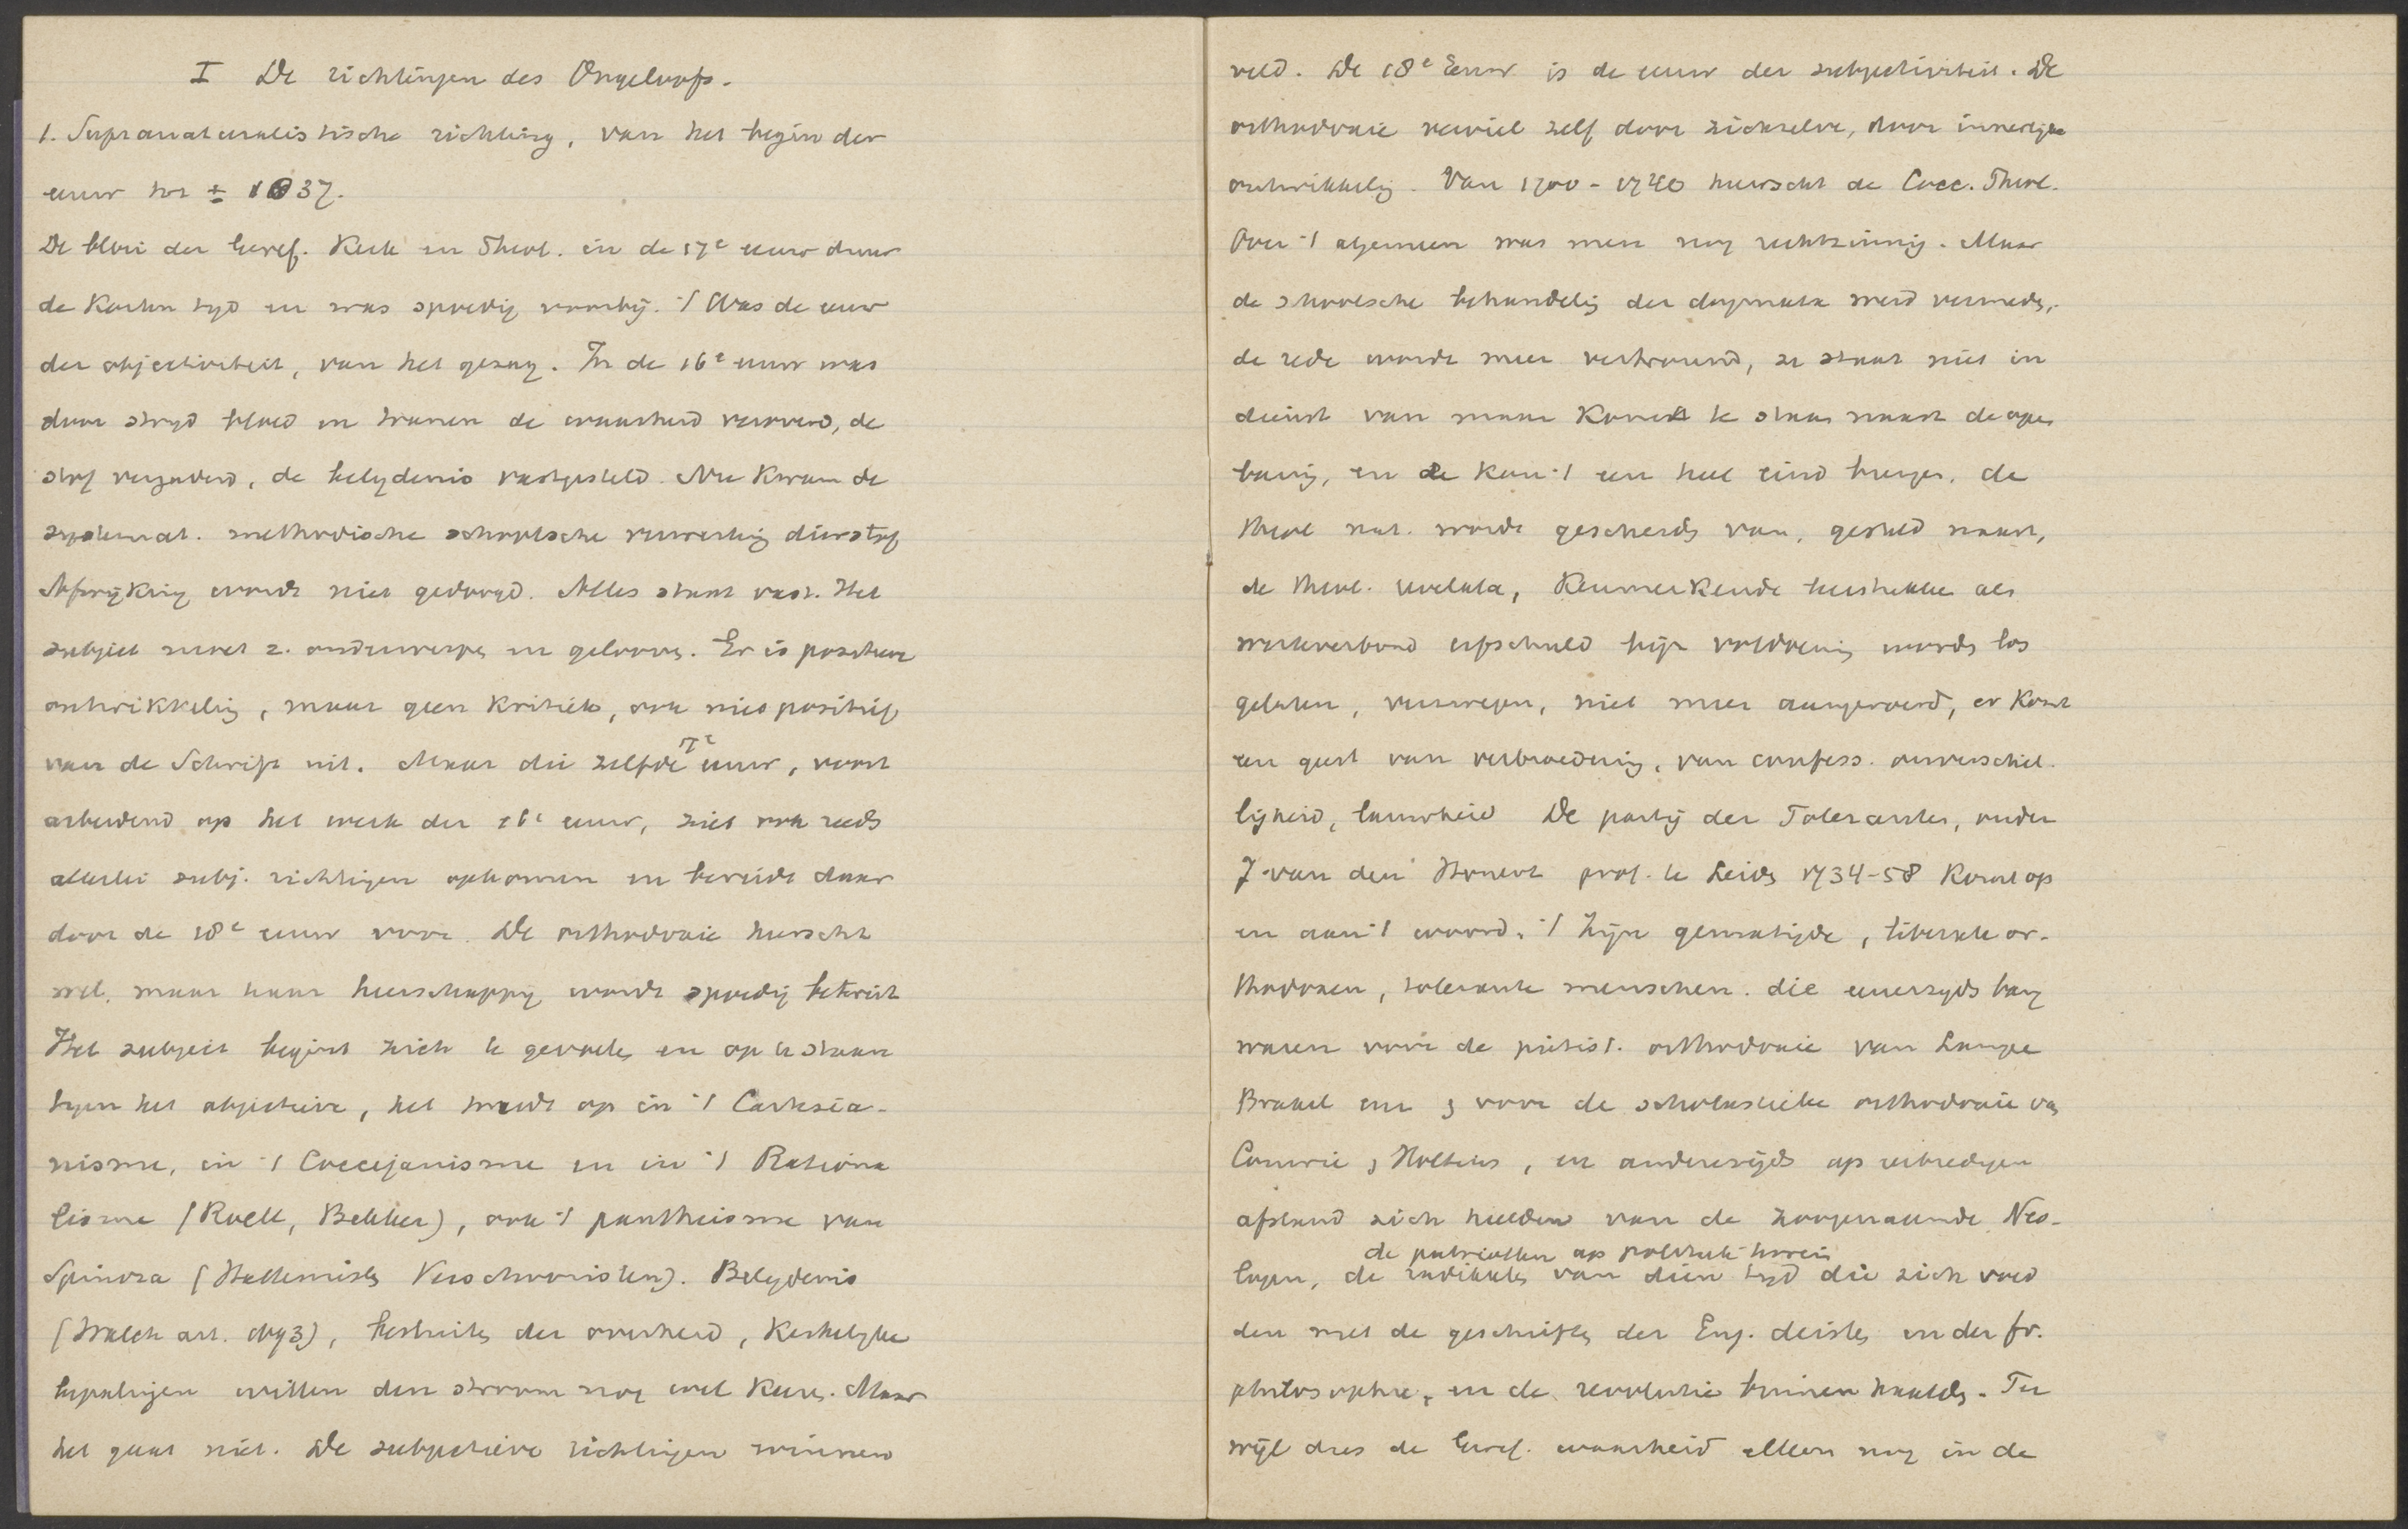 I De richtingen des Ongeloofs.
1. Supranaturalistische richting, van het begin der
eeuw tot ± 1837.
De bloei der Geref. Kerk en Theol. in de 17e eeuw duur
de korten tyd en was spoedig voorbij. 't Was de eeuw
der objectiviteit, van het gezag. In de 16e eeuw was
door stryd bloed en tranen de waarheid veroverd, de
stof vergaderd, de belydenis vastgesteld. Nu kwam de
systemat. methodische schoolsche verwerking dier stof
Afwijking wordt niet geduld. Alles staat vast. Het
subject moet z. onderwerpen en gelooven. Er is
ontwikkeling, maar geen kritiek, ook niet positief
van de Schrift uit. Maar die zelfde 17e eeuw, voort
arbeidend op het werk der 16e eeuw, ziet ook reeds
allerlei subj. richtingen opkomen en bereidt daar
door de 18e eeuw voor. De orthodoxie heerscht
wel, maar haar heerschappy wordt spoedig betwist
Het subject begint zich te gevoelen en op te staan
tegen het objectieve, het treedt op in 't Cartesia-
nisme, in 't Coccejanisme en in 't Rationa
lisme (Roell, Bekker), ook 't pantheisme van
Spinoza (Hattemisten Verschooristen). Belydenis
(Walch art.), besluiten der overheid, Kerkelyke
bepalingen willen den stroom nog wel keeren. Maar
het gaat niet. De subjectieve richtingen winnen
veld. De 18e Eeuw is de eeuw der subjectiviteit. De
orthodoxie verviel zelf door zichzelve, door innerlijke
ontwikkeling. Van 1700-1740 heerscht de Cocc. Theol.
Over 't algemeen was men nog rechtzinnig. Maar
de schoolsche behandeling der dogmata werd vermeden,
de rede wordt meer vertrouwd, ze staat niet in
dienst van maar komt te staan naast de open
baring, en ze kan 't een heel eind brengen. de
theol nat. wordt gescheiden van, gesteld naast,
de theol. revelata, Kenmerkende leerstukken als
werkverbond erfschuld lijd. voldoening worden los
gelaten, verzwegen, niet meer aangeroerd, er komt
een geest van verbroedering, van confess. onverschil.
ligheid, lauwheid De partij der Toleranten, onder
J van den Honert prof. te Leiden 1734-58 komt op
en aan 't woord. 't Zijn gematigde, liberale or-
thodoxen, tolerante menschen. die eenerzyds bang
waren voor de piëtist. orthodoxie van Lampe
Brakel enz voor de scholastieke orthodoxie van
Comrie, Holtius, en anderzijds op eerbiedigen
afstand zich hielden van de zoogenaamde Neo-
de patriotten op politiek terrein
logen, de radikalen van dien tyd die zich voed
den met de geschriften der Eng. deisten en der fr.
philosophie, en de revolutie binnen haalden. Ter
wijl dus de Geref. waarheid alleen nog in de